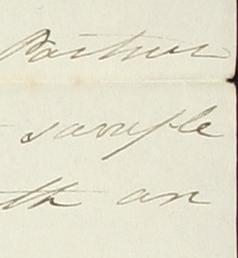 Partner
sample
th an